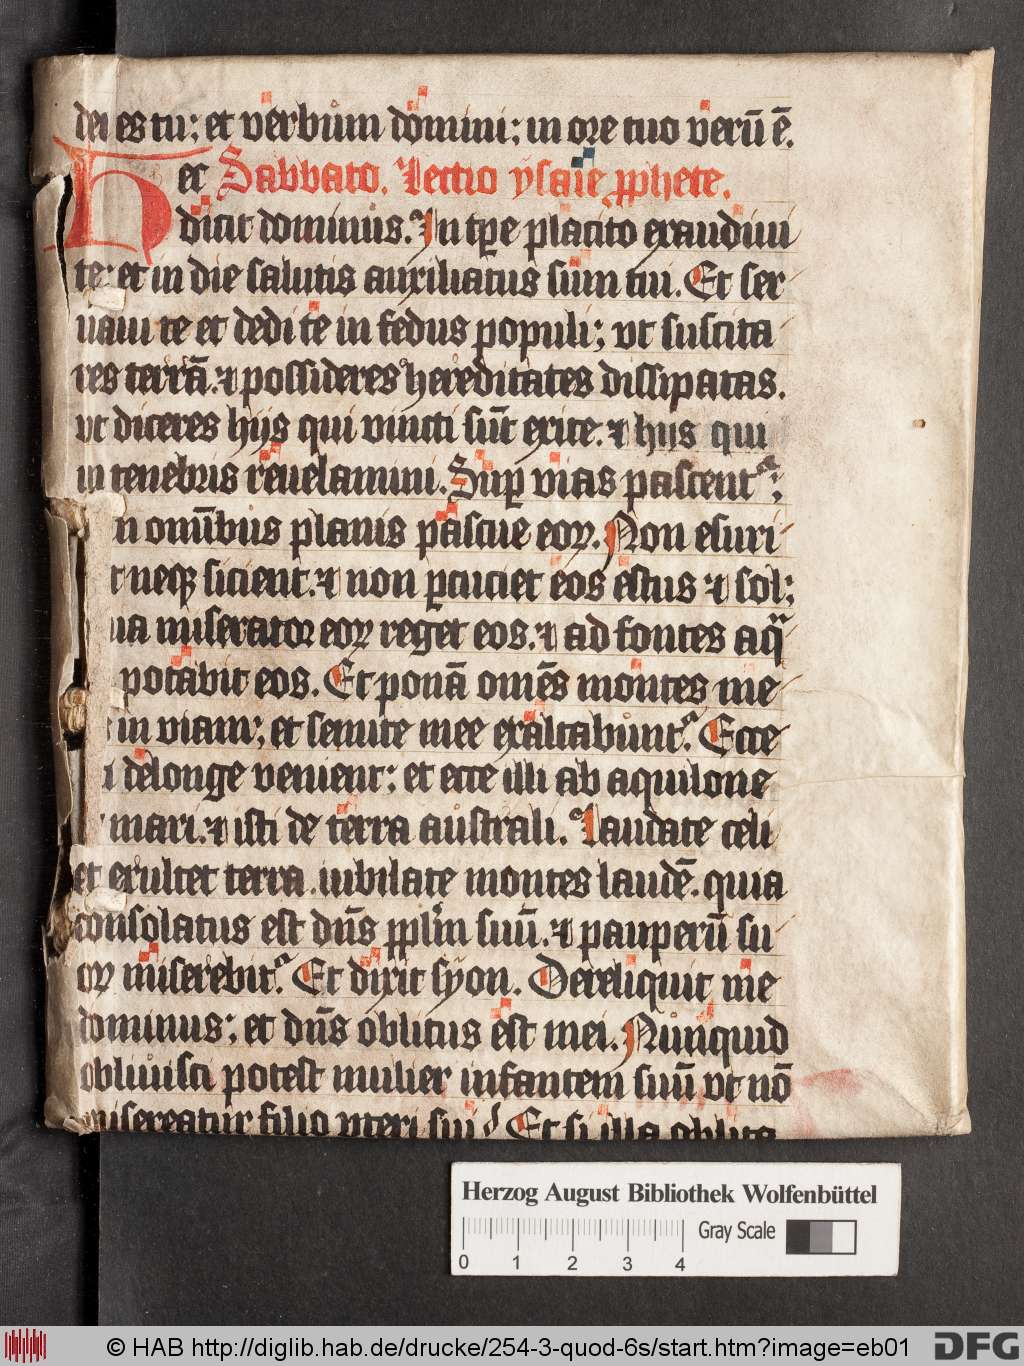 dei es tu; et verbum domini; in ore tuo verū ē.
Hec Sabbato. Lectio ysaie pphete.
dicit dominus. In tpe placito exaudiui
te: et in die salutis auxiliatus sum tui. Et ser
uaui te et dedi te in fedus populi; vt suscita
res terrā. ⁊ possideres hereditates dissipatas.
vt diceres hijs qui vincti sūt exite. ⁊ hijs qui
in tenebris reuelamini. Sup vias pascent᷑;
in omībus planis pascue eoꝝ. Non esuri
t neqꝫ sicient. ⁊ non pcuciet eos estus ⁊ sol;
uia miserator eoꝝ reget eos. ⁊ ad fontes aqͣ
potabit eos. Et ponā omēs montes me
in viam; et semite mee exaltabunt᷑. Ecce
i delonge venient; et ecce illi ab aquilone
mari. ⁊ isti de terra australi. Laudate celi
et exultet terra. iubilate montes laudē. quia
consolatus est dn̄s pplm suū. ⁊ pauperū su
oꝝ miserebit᷑. Et dixit syon. Dereliquit me
dominus; et dn̄s oblitus est mei. Nunquid
obliuisci potest mulier infantem suū vt nō
misereatur filio vteri sui Et si illa oblita
Herzog August Bibliothek Wolfenbüttel
Gray Scale
0 1 2 3 4
© HAB http://diglib.hab.de/drucke/254-3-quod-6s/start.htm?image=eb01
DFG